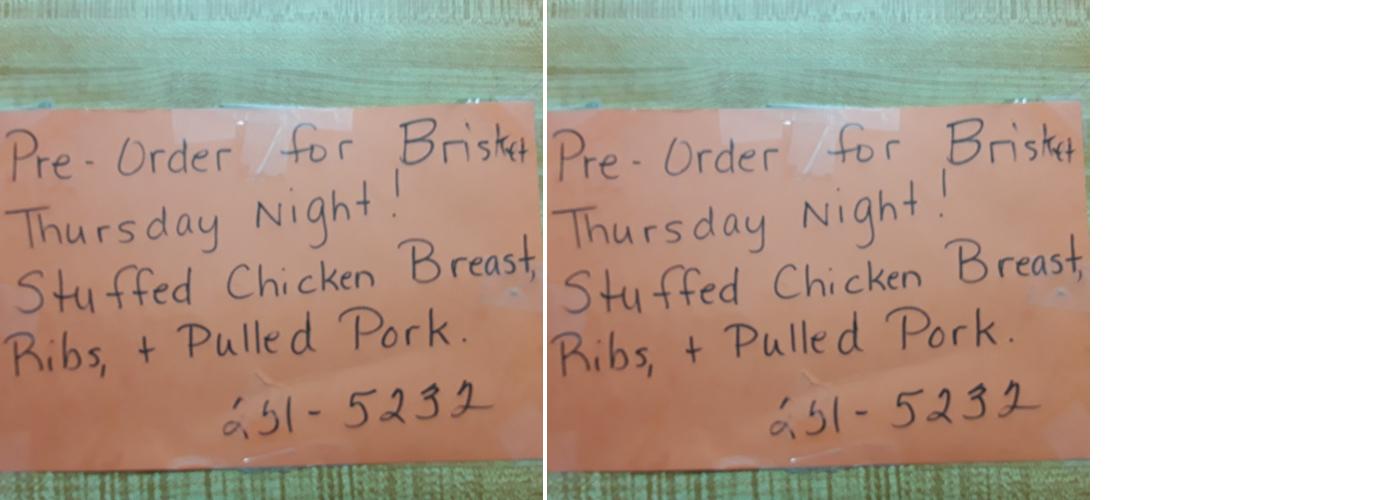 Pre-Order for Brisket
Thursday Night!
Stuffed Chicken Breast,
Ribs, + Pulled Pork.
251-5232
Pre-Order for Brisket
Thursday Night!
Stuffed Chicken Breast,
Ribs, + Pulled Pork.
251-5232